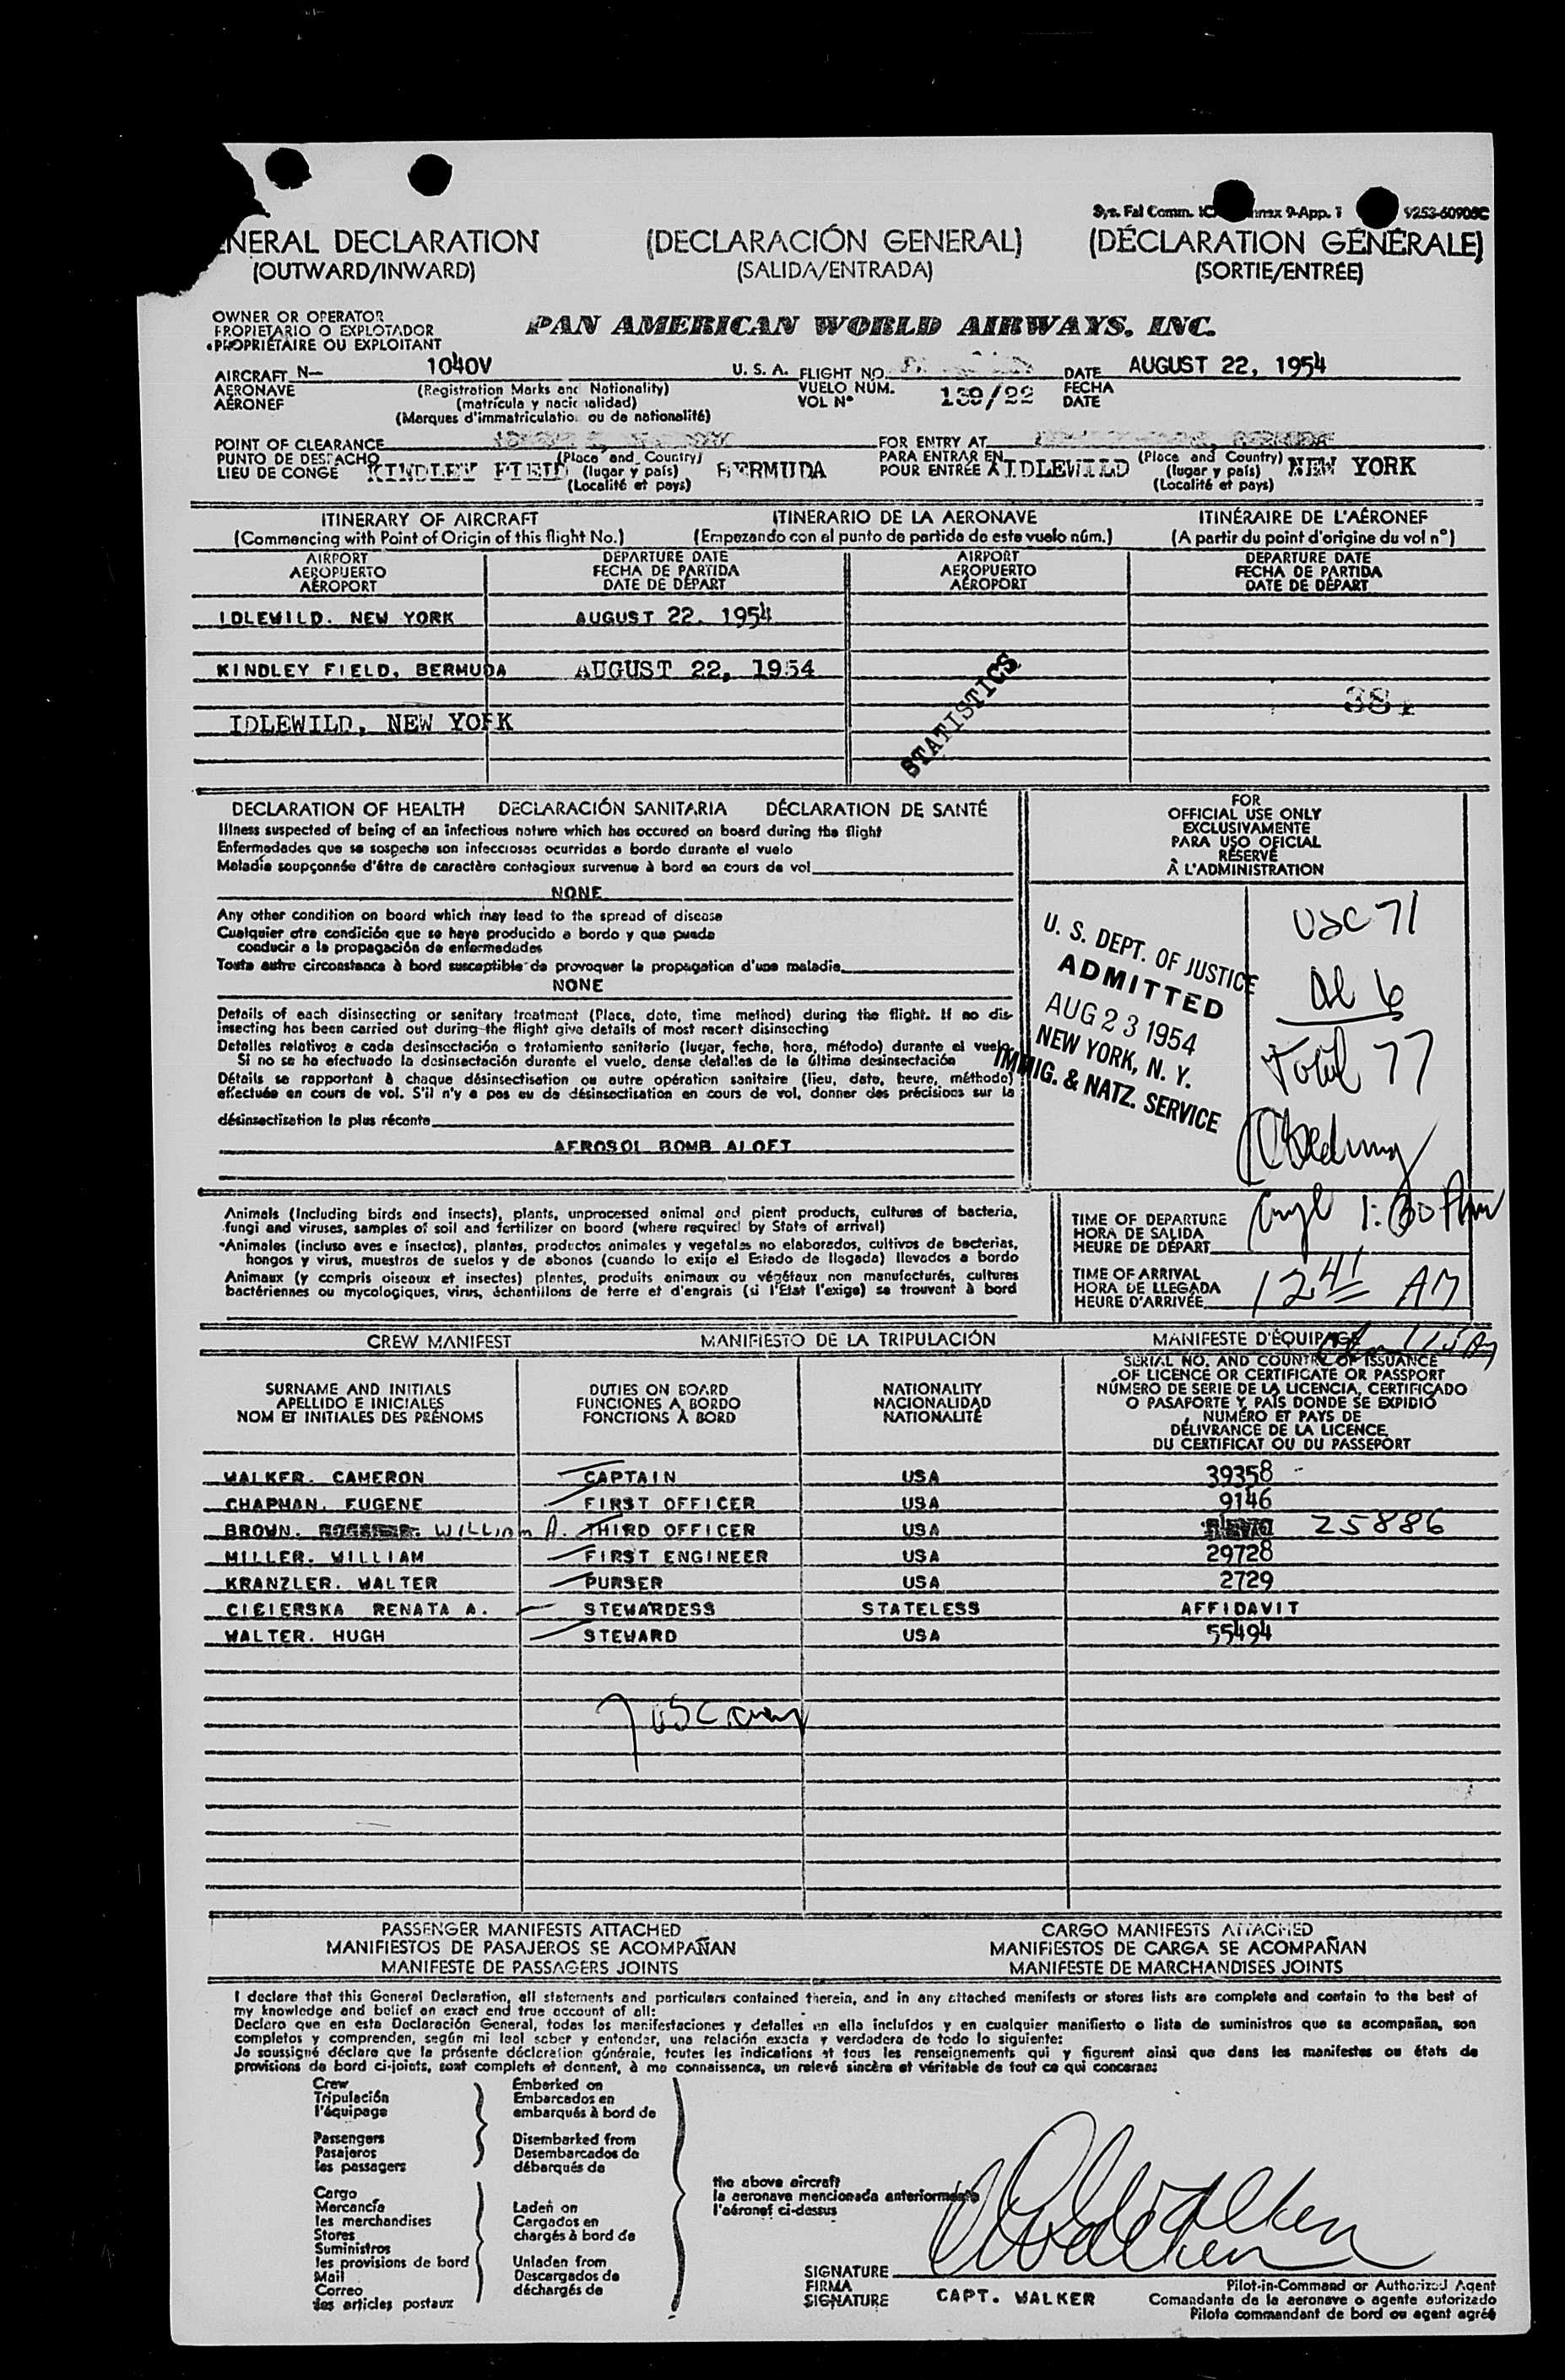 Sys. Fal Comm. 9-App. 1 9253-60905C
NERAL DECLARATION (DECLARACIÓN GENERAL) (DÉCLARATION GÉNÉRALE)
(OUTWARD/INWARD) (SALIDA/ENTRADA) (SORTIE/ENTRÉE)
OWNER OR OPERATOR
PROPIETARIO O EXPLOTADOR
PROPRIÉTAIRE OU EXPLOITANT
PAN AMERICAN WORLD AIRWAYS, INC.
AIRCRAFT N— 1040V U. S. A. FLIGHT NO. DATE AUGUST 22, 1954
AERONAVE (Registration Marks and Nationality) VUELO NÚM. 139/22 FECHA
AÉRONEF (matrícula y nacionalidad) VOL Nº DATE
(Marques d'immatriculation ou de nationalité)
POINT OF CLEARANCE (Place and Country) FOR ENTRY AT (Place and Country)
PUNTO DE DESPACHO (lugar y país) PARA ENTRAR EN (lugar y país)
LIEU DE CONGÉ KINDLEY FIELD BERMUDA POUR ENTRÉE A IDLEWILD NEW YORK
(Localité et pays) (Localité et pays)
ITINERARY OF AIRCRAFT ITINERARIO DE LA AERONAVE ITINÉRAIRE DE L'AÉRONEF
(Commencing with Point of Origin of this flight No.) (Empezando con el punto de partida de este vuelo núm.) (A partir du point d'origine du vol nº)
AIRPORT DEPARTURE DATE AIRPORT DEPARTURE DATE
AEROPUERTO FECHA DE PARTIDA AEROPUERTO FECHA DE PARTIDA
AÉROPORT DATE DE DÉPART AÉROPORT DATE DE DÉPART
IDLEWILD. NEW YORK AUGUST 22. 1954
KINDLEY FIELD, BERMUDA AUGUST 22, 1954
STATISTICS
IDLEWILD, NEW YORK
DECLARATION OF HEALTH DECLARACIÓN SANITARIA DÉCLARATION DE SANTÉ
Illness suspected of being of an infectious nature which has occured on board during the flight
Enfermedades que se sospecha son infecciosas ocurridas a bordo durante el vuelo
Maladie soupçonnée d'être de caractère contagieux survenue à bord en cours de vol
NONE
Any other condition on board which may lead to the spread of disease
Cualquier otra condición que se haya producido a bordo y que pueda
conducir a la propagación de enfermedades
Toute autre circonstance à bord susceptible de provoquer la propagation d'une maladie
NONE
Details of each disinsecting or sanitary treatment (Place, date, time method) during the flight. If no dis-
insecting has been carried out during the flight give details of most recent disinsecting
Detalles relativos a cada desinsectación o tratamiento sanitario (lugar, fecha, hora, método) durante el vuelo
Si no se ha efectuado la desinsectación durante el vuelo, dense detalles de la última desinsectación
Détails se rapportant à chaque désinsectisation ou autre opération sanitaire (lieu, date, heure, méthode)
effectuée en cours de vol. S'il n'y a pas eu de désinsectisation en cours de vol, donner des précisions sur la
désinsectisation la plus récente
AEROSOL BOMB ALOFT
FOR
OFFICIAL USE ONLY
EXCLUSIVAMENTE
PARA USO OFICIAL
RÉSERVÉ
À L'ADMINISTRATION
U. S. DEPT. OF JUSTICE
ADMITTED
AUG 23 1954
NEW YORK, N. Y.
IMMIG. & NATZ. SERVICE
USC 71
Al 6
Total 77
Animals (Including birds and insects), plants, unprocessed animal and plant products, cultures of bacteria,
fungi and viruses, samples of soil and fertilizer on board (where required by State of arrival)
Animales (incluso aves e insectos), plantas, productos animales y vegetales no elaborados, cultivos de bacterias,
hongos y virus, muestras de suelos y de abonos (cuando lo exija el Estado de llegada) llevados a bordo
Animaux (y compris oiseaux et insectes) plantes, produits animaux ou végétaux non manufacturés, cultures
bactériennes ou mycologiques, virus, échantillons de terre et d'engrais (si l'État l'exige) se trouvant à bord
TIME OF DEPARTURE
HORA DE SALIDA
HEURE DE DÉPART
TIME OF ARRIVAL
HORA DE LLEGADA
HEURE D'ARRIVÉE
12 41 AM
CREW MANIFEST MANIFIESTO DE LA TRIPULACIÓN MANIFESTE D'ÉQUIPAGE
SURNAME AND INITIALS
APELLIDO E INICIALES
NOM ET INITIALES DES PRÉNOMS
DUTIES ON BOARD
FUNCIONES A BORDO
FONCTIONS À BORD
NATIONALITY
NACIONALIDAD
NATIONALITÉ
SERIAL NO. AND COUNTRY OF ISSUANCE
OF LICENCE OR CERTIFICATE OR PASSPORT
NÚMERO DE SERIE DE LA LICENCIA, CERTIFICADO
O PASAPORTE Y PAÍS DONDE SE EXPIDIÓ
NUMÉRO ET PAYS DE
DÉLIVRANCE DE LA LICENCE,
DU CERTIFICAT OU DU PASSEPORT
WALKER. CAMERON CAPTAIN USA 39358
CHAPMAN. EUGENE FIRST OFFICER USA 9146
BROWN. WILLIAM A. THIRD OFFICER USA 25886
MILLER. WILLIAM FIRST ENGINEER USA 29728
KRANZLER. WALTER PURSER USA 2729
CIEIERSKA RENATA A. STEWARDESS STATELESS AFFIDAVIT
WALTER. HUGH STEWARD USA 55494
PASSENGER MANIFESTS ATTACHED CARGO MANIFESTS ATTACHED
MANIFIESTOS DE PASAJEROS SE ACOMPAÑAN MANIFIESTOS DE CARGA SE ACOMPAÑAN
MANIFESTE DE PASSAGERS JOINTS MANIFESTE DE MARCHANDISES JOINTS
I declare that this General Declaration, all statements and particulars contained therein, and in any attached manifests or stores lists are complete and contain to the best of
my knowledge and belief an exact and true account of all:
Declaro que en esta Declaración General, todas las manifestaciones y detalles en ella incluídos y en cualquier manifiesto o lista de suministros que se acompañan, son
completos y comprenden, según mi leal saber y entender, una relación exacta y verdadera de todo lo siguiente:
Je soussigné déclare que la présente déclaration générale, toutes les indications et tous les renseignements qui y figurent ainsi que dans les manifestes ou états de
provisions de bord ci-joints, sont complets et donnent, à ma connaissance, un relevé sincère et véritable de tout ce qui concerne:
Crew Embarked on
Tripulación Embarcados en
l'équipage embarqués à bord de
Passengers Disembarked from
Pasajeros Desembarcados de
les passagers débarqués de
the above aircraft
la aeronave mencionada anteriormente
l'aéronef ci-dessus
Cargo
Mercancía Laden on
les merchandises Cargados en
Stores chargés à bord de
Suministros
les provisions de bord Unladen from
Mail Descargados de
Correo déchargés de
des articles postaux
SIGNATURE
FIRMA
SIGNATURE
CAPT. WALKER
Pilot-in-Command or Authorized Agent
Comandante de la aeronave o agente autorizado
Pilote commandant de bord ou agent agréé